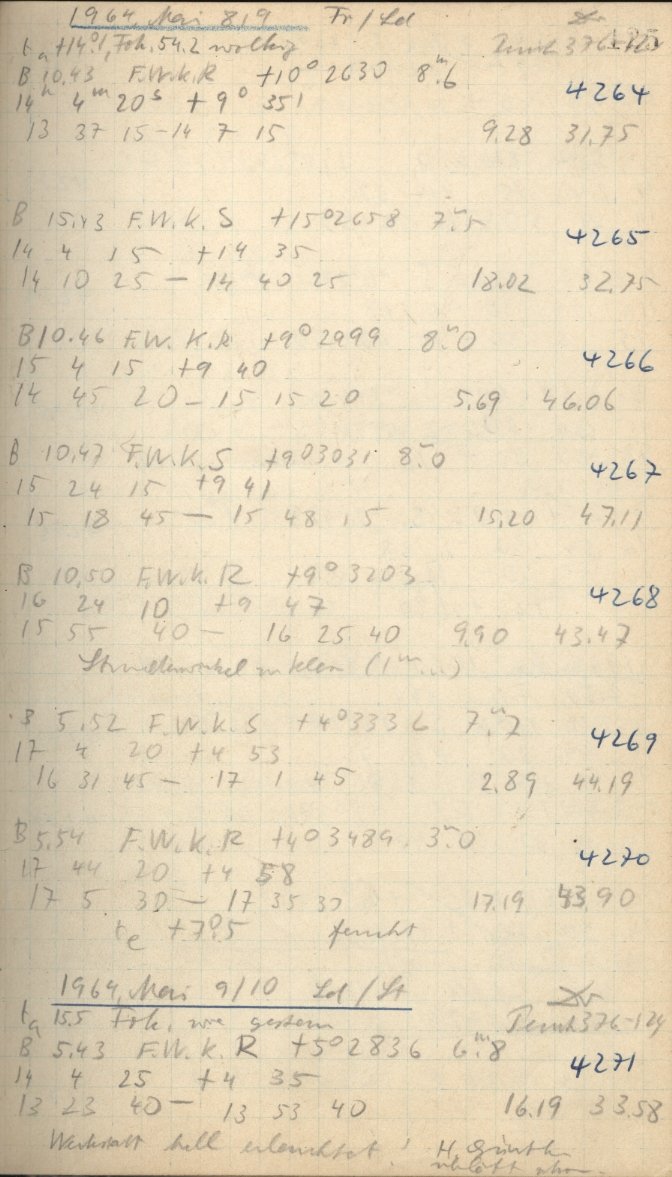 1964 Mai 8/9 Fr/Ld
ta +14°,1, Fok. 54.2 wolkig 376-125
B 10.43 F.W.K.R +10° 2630 8ᵐ.6
14ʰ 4ᵐ 20ˢ +9° 35' 4264
13 37 15 – 14 7 15 9.28 31.75
B 15.43 F.W.K.S +15°2658 7ᵐ.5
14 4 15 +14 35 4265
14 10 25 – 14 40 25 18.02 32.75
B 10.46 F.W.K.R +9° 2999 8ᵐ.0
15 4 15 +9 40 4266
14 45 20 – 15 15 20 5.69 46.06
B 10.47 F.W.K.S +9°3031 8ᵐ.0
15 24 15 +9 41 4267
15 18 45 – 15 48 15 15.20 47.11
B 10.50 F.W.K.R +9° 3203
16 24 10 +9 47 4268
15 55 40 – 16 25 40 9.90 43.47
Stundenwinkel zu klein
B 5.52 F.W.K.S +4°3336 7ᵐ.7
17 4 20 +4 53 4269
16 31 45 – 17 1 45 2.89 44.19
B 5.54 F.W.K.R +4°3489 3ᵐ.0
17 44 20 +4 58 4270
17 5 30 – 17 35 30 17.19 43.90
te +7°.5 feucht
1964 Mai 9/10 Ld/St
ta 15.5 Fok. wie gestern 376-124
B 5.43 F.W.K.R +5°2836 6ᵐ.8
14 4 25 +4 35 4271
13 23 40 – 13 53 40 16.19 33.58
Werkstatt hell erleuchtet!